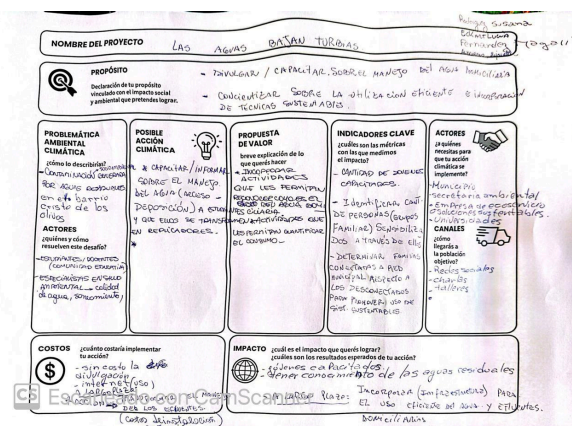 Susana
Fernandez
NOMBRE DEL PROYECTO LAS AGUAS BAJAN TURBIAS
PROPÓSITO
Declaración de tu propósito
vinculado con el impacto social
y ambiental que pretendes lograr.
- DIVULGAR / CAPACITAR SOBRE EL MANEJO DEL AGUA
- CONCIENTIZAR SOBRE LA UTILIZACION EFICIENTE E INCORPORACION
DE TECNICAS SUSTENTABLES.
PROBLEMÁTICA
AMBIENTAL
CLIMÁTICA
¿cómo lo describirías?
- CONTAMINACION GENERADA
POR AGUAS RESIDUALES
en el barrio
cristo de los
olivos
ACTORES
¿quiénes y cómo
resuelven este desafío?
- ESTUDIANTES / DOCENTES
(COMUNIDAD EDUCATIVA)
- ESPECIALISTAS EN
AMBIENTAL - calidad
de agua, saneamiento,
POSIBLE
ACCIÓN
CLIMÁTICA
* CAPACITAR / INFORMAR
SOBRE EL MANEJO
DEL AGUA (ACCESO -
DEPOSICIÓN) A
Y QUE ELLOS SE TRANSFORMEN
EN REPLICADORES.
*
PROPUESTA
DE VALOR
breve explicación de lo
que querés hacer
- INCORPORAR
ACTIVIDADES
QUE LES PERMITAN
ACTIVIDADES QUE
LES PERMITAN CUANTIFICAR
EL CONSUMO -
INDICADORES CLAVE
¿cuáles son las métricas
con las que medimos
el impacto?
- CANTIDAD DE JOVENES
CAPACITADOS.
- Identificar CANT
DE PERSONAS (GRUPOS
FAMILIAR) SENSIBILIZA
DOS A TRAVÉS DE ELLOS
- DETERMINAR FAMILIAS
CONECTADAS A RED
MUNICIPAL) RESPECTO A
LOS DESCONECTADOS
PARA PROMOVER) USO DE
SIST. SUSTENTABLES.
ACTORES
¿a quiénes
necesitas para
que tu acción
climática se
implemente?
- Municipio
- secretaria ambiental
- Empresa de
- Universidades
CANALES
¿cómo
llegarás a
la población
objetivo?
- Redes sociales
- charlas
- talleres
COSTOS
¿cuánto costaría implementar
tu acción?
- sin costo la
divulgación
- internet (uso)
- LARGO PLAZO:
DE LOS EFLUENTES.
IMPACTO
¿cuál es el impacto que querés lograr?
¿cuáles son los resultados esperados de tu acción?
- jóvenes capacitados.
- tener conocimiento de las aguas residuales
- A LARGO PLAZO: INCORPORAR (INFRAESTRUCTURA) PARA
EL USO EFICIENTE DE AGUA Y EFLUENTES.
DOMICILIARIOS
CS Escaneado con CamScanner